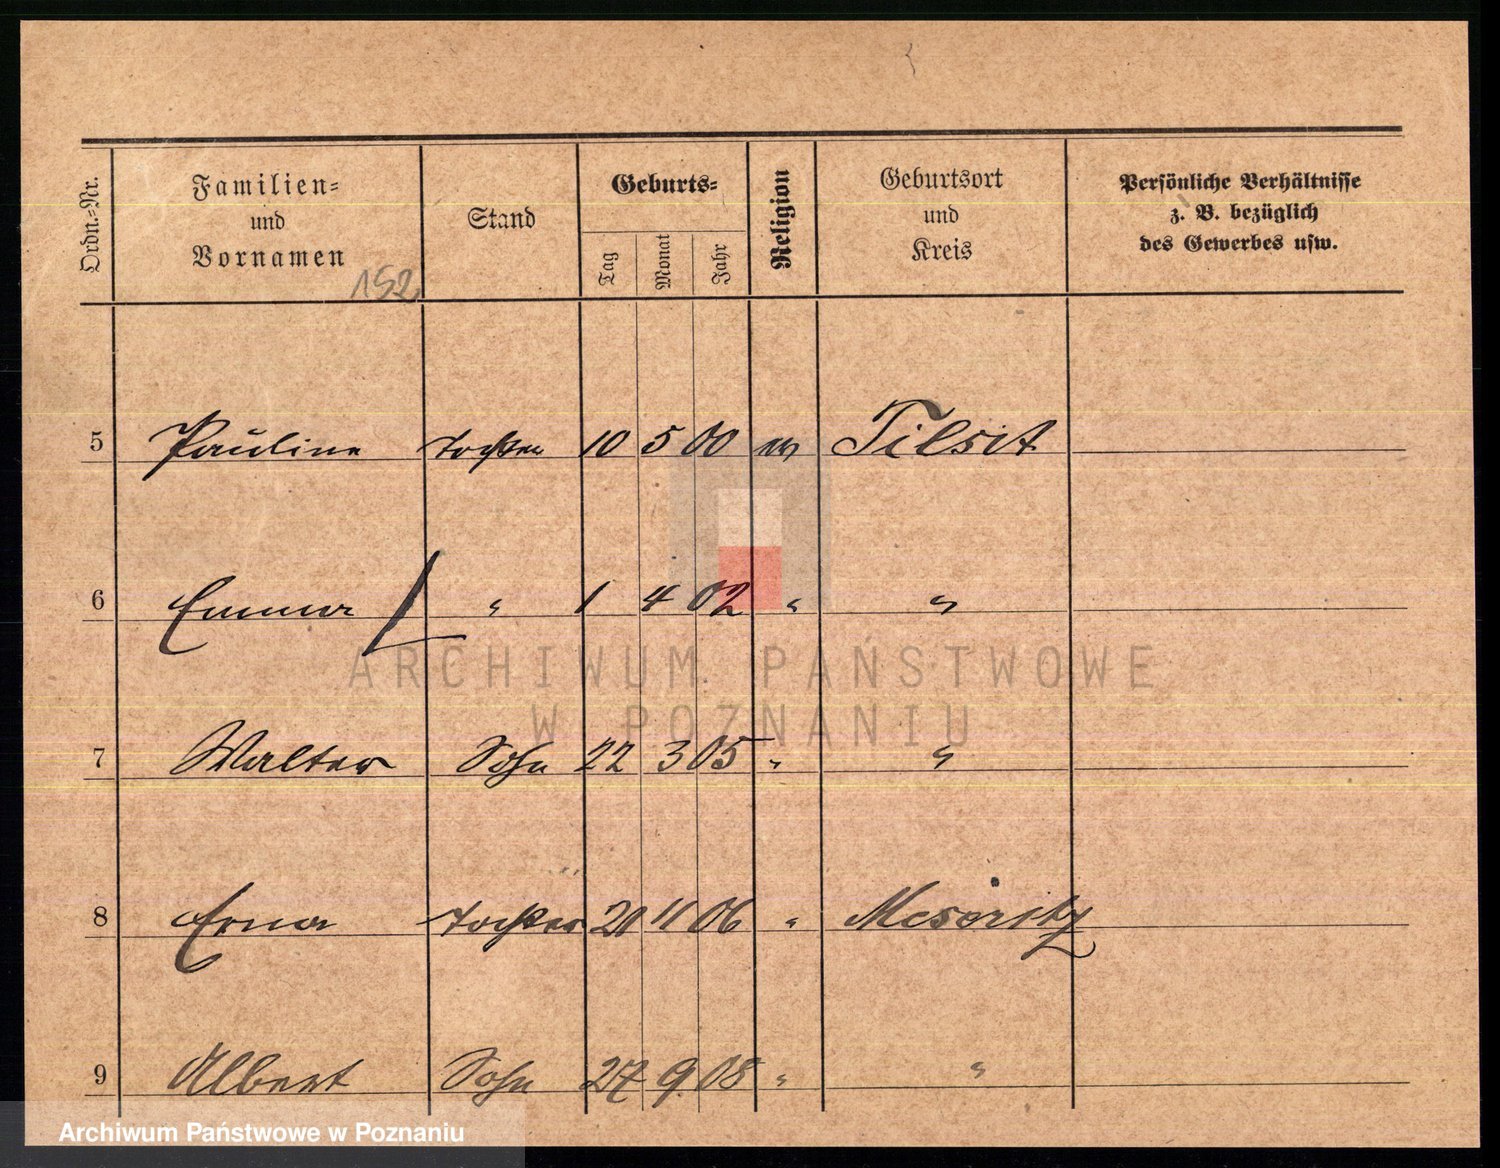 Ordn.-Nr.
Familien-
und
Vornamen
152
Stand
Geburts-
Tag
Monat
Jahr
Religion
Geburtsort
und
Kreis
Persönliche Verhältnisse
z. B. bezüglich
des Gewerbes usw.
5 Pauline Tochter 10 5 00 ev Tilsit
6 Emma " 1 4 02 " "
7 Walter Sohn 22 3 05 " "
8 Erna Tochter 20 11 06 " Meseritz
9 Albert Sohn 27 9 08 " "
ARCHIWUM PAŃSTWOWE
W POZNANIU
Archiwum Państwowe w Poznaniu